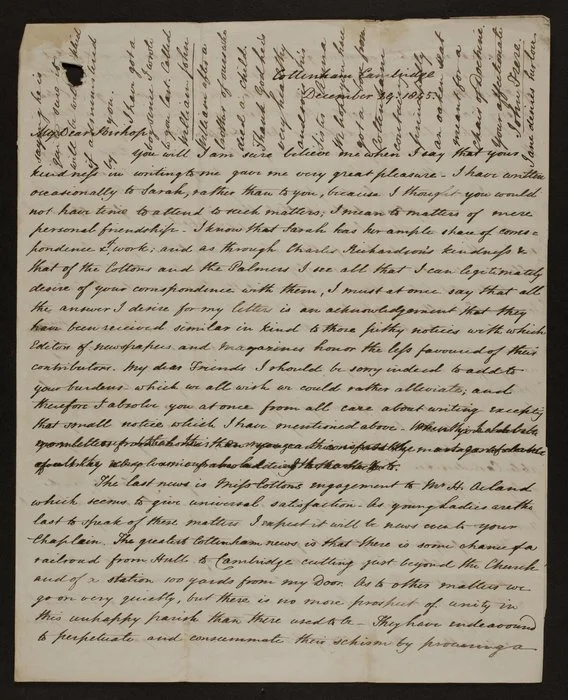 Cottenham Cambridge
December 29. 1855
My Dear Bishop
You will I am sure believe me when I say that your
kindness in writing to me gave me very great pleasure - I have written
occasionally to Sarah, rather than to you, because I thought you would
not have time to attend to such matters, I mean to matters of mere
personal friendship - I know that Sarah has her ample share of corres=
pondence & work; and as through Charles Richardson's kindness &
that of the Cottons and the Palmers I see all that I can legitimately
desire of your correspondence with them, I must at once say that all
the answer I desire for my letters is an acknowledgement that they
have been received similar in kind to those pithy notices with which
Editors of newspapers and magazines honor the less favoured of their
contributors. My dear Friends I should be sorry indeed to add to
your burdens which we all wish we could rather alleviate; and
therefore I absolve you at once from all care about writing excepting
that small notice which I have mentioned above -
The last news is Miss Cotton's engagement to Mr H. Acland
which seems to give universal satisfaction - As young Ladies are the
last to speak of these matters I expect it will be news even to your
Chaplain. The greatest Cottenham news is that there is some chance of a
railroad from Hull to Cambridge cutting just beyond the Church
and of a station 100 yards from my Door. As to other matters we
go on very quietly, but there is no more prospect of unity in
this unhappy parish than there used to be - They have endeavoured
to perpetuate and consummate their schism by procuring a
saying he is
by you
I have got a
since I wrote
to you last. Called
William John
William after a
brother of mine who
died a child.
Thank God he is
very healthy
and so is his
Sister
We hope
got a
friendly
an
meant for a
pair of
Yours affectionate
John
Jane desires her love